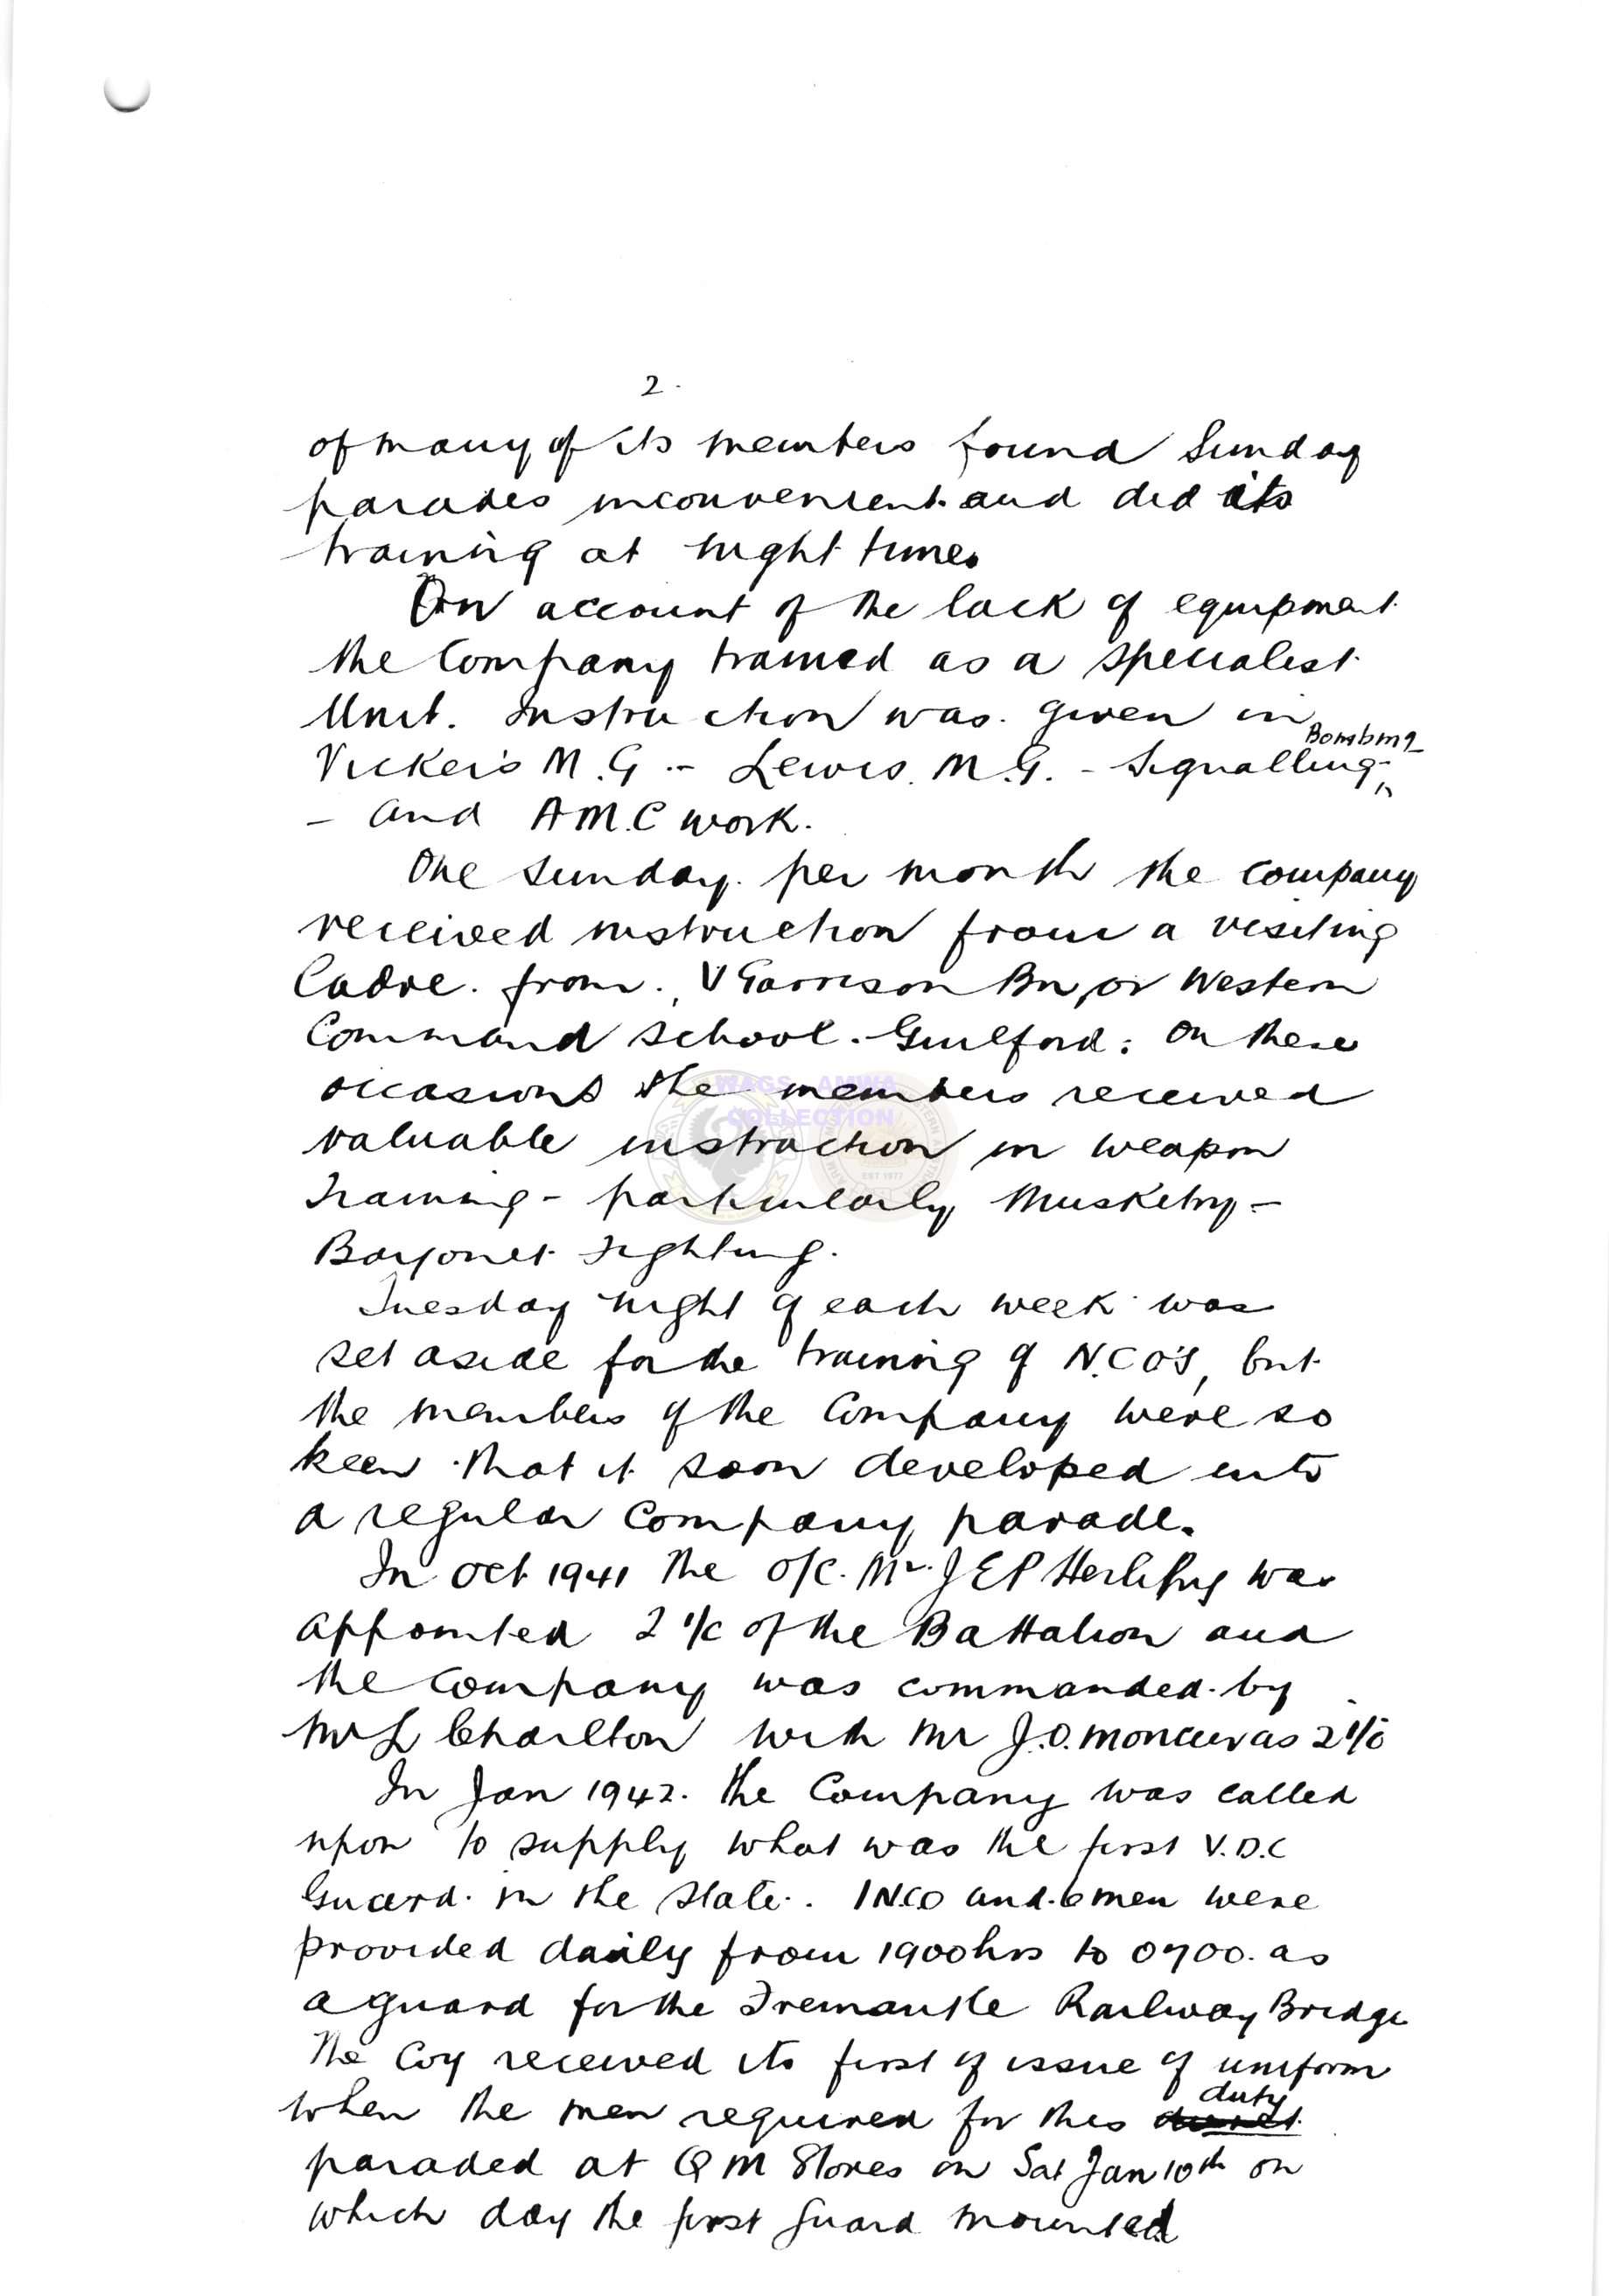 2.
of many of its members found Sunday
parades inconvenient and did its
training at night time.
On account of the lack of equipment
the Company trained as a specialist
Unit. Instruction was given in
Bombing
Vickers M.G. - Lewis. M.G. - Signalling -
- and A.M.C work.
One Sunday per month the company
received instruction from a visiting
Cadre. from. V Garrison Bn, or Western
Command School. Guilford. On these
occasions the members received
WAGS AMWA
COLLECTION
valuable instruction in weapon
EST 1977
Training - particularly Musketry -
Bayonet Fighting.
Tuesday night of each week was
set aside for the training of N.C.O'S, but
the members of the Company were so
keen that it soon developed into
a regular Company parade.
In Oct 1941 the O/C. Mr. J E P Herlihy was
appointed 2 I/C of the Battalion and
the Company was commanded by
Mr L Charlton with Mr J.O. Moncur as 2 I/C
In Jan 1942. the Company was called
upon to supply what was the first V.D.C
Guard in the State. 1 NCO and 6 men were
provided daily from 1900 hrs to 0700. as
a guard for the Fremantle Railway Bridge
The Coy received its first of issue of uniform
duty
when the men required for this
paraded at Q M Stores on Sat Jan 10th on
which day the first guard mounted